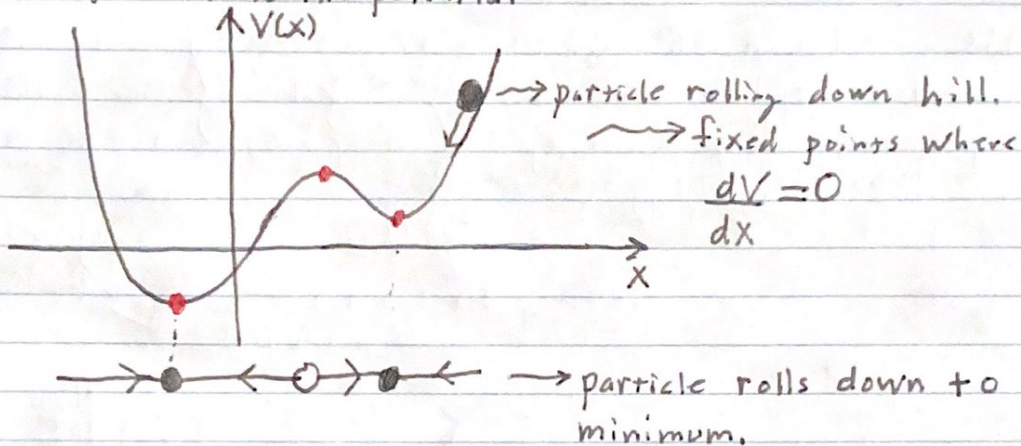 V(x)
→ particle rolling down hill.
→ fixed points where
dV/dx = 0
x
→ particle rolls down to
minimum.